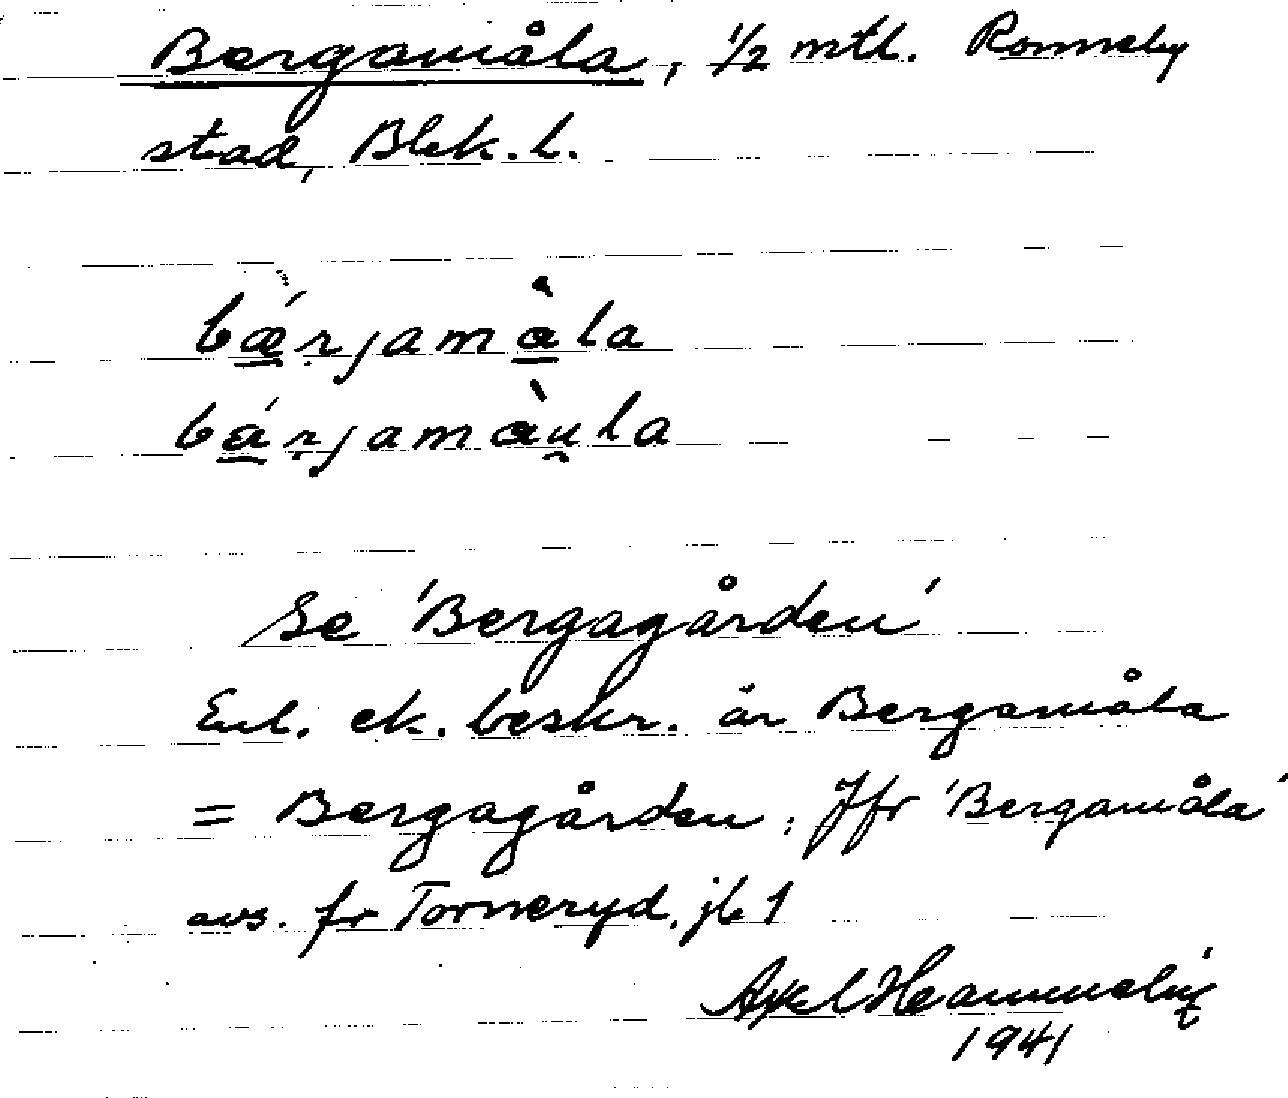 Bergamåla, 1/2 mtl. Ronneby
stad, Blek. l.
bǽrjamå̀la
bárjamàu̯la
Se 'Bergagården'
Enl. ek. beskr. är Bergamåla
= Bergagården. Jfr 'Bergamåla'
avs. fr Torneryd, jb 1
Axel
1941